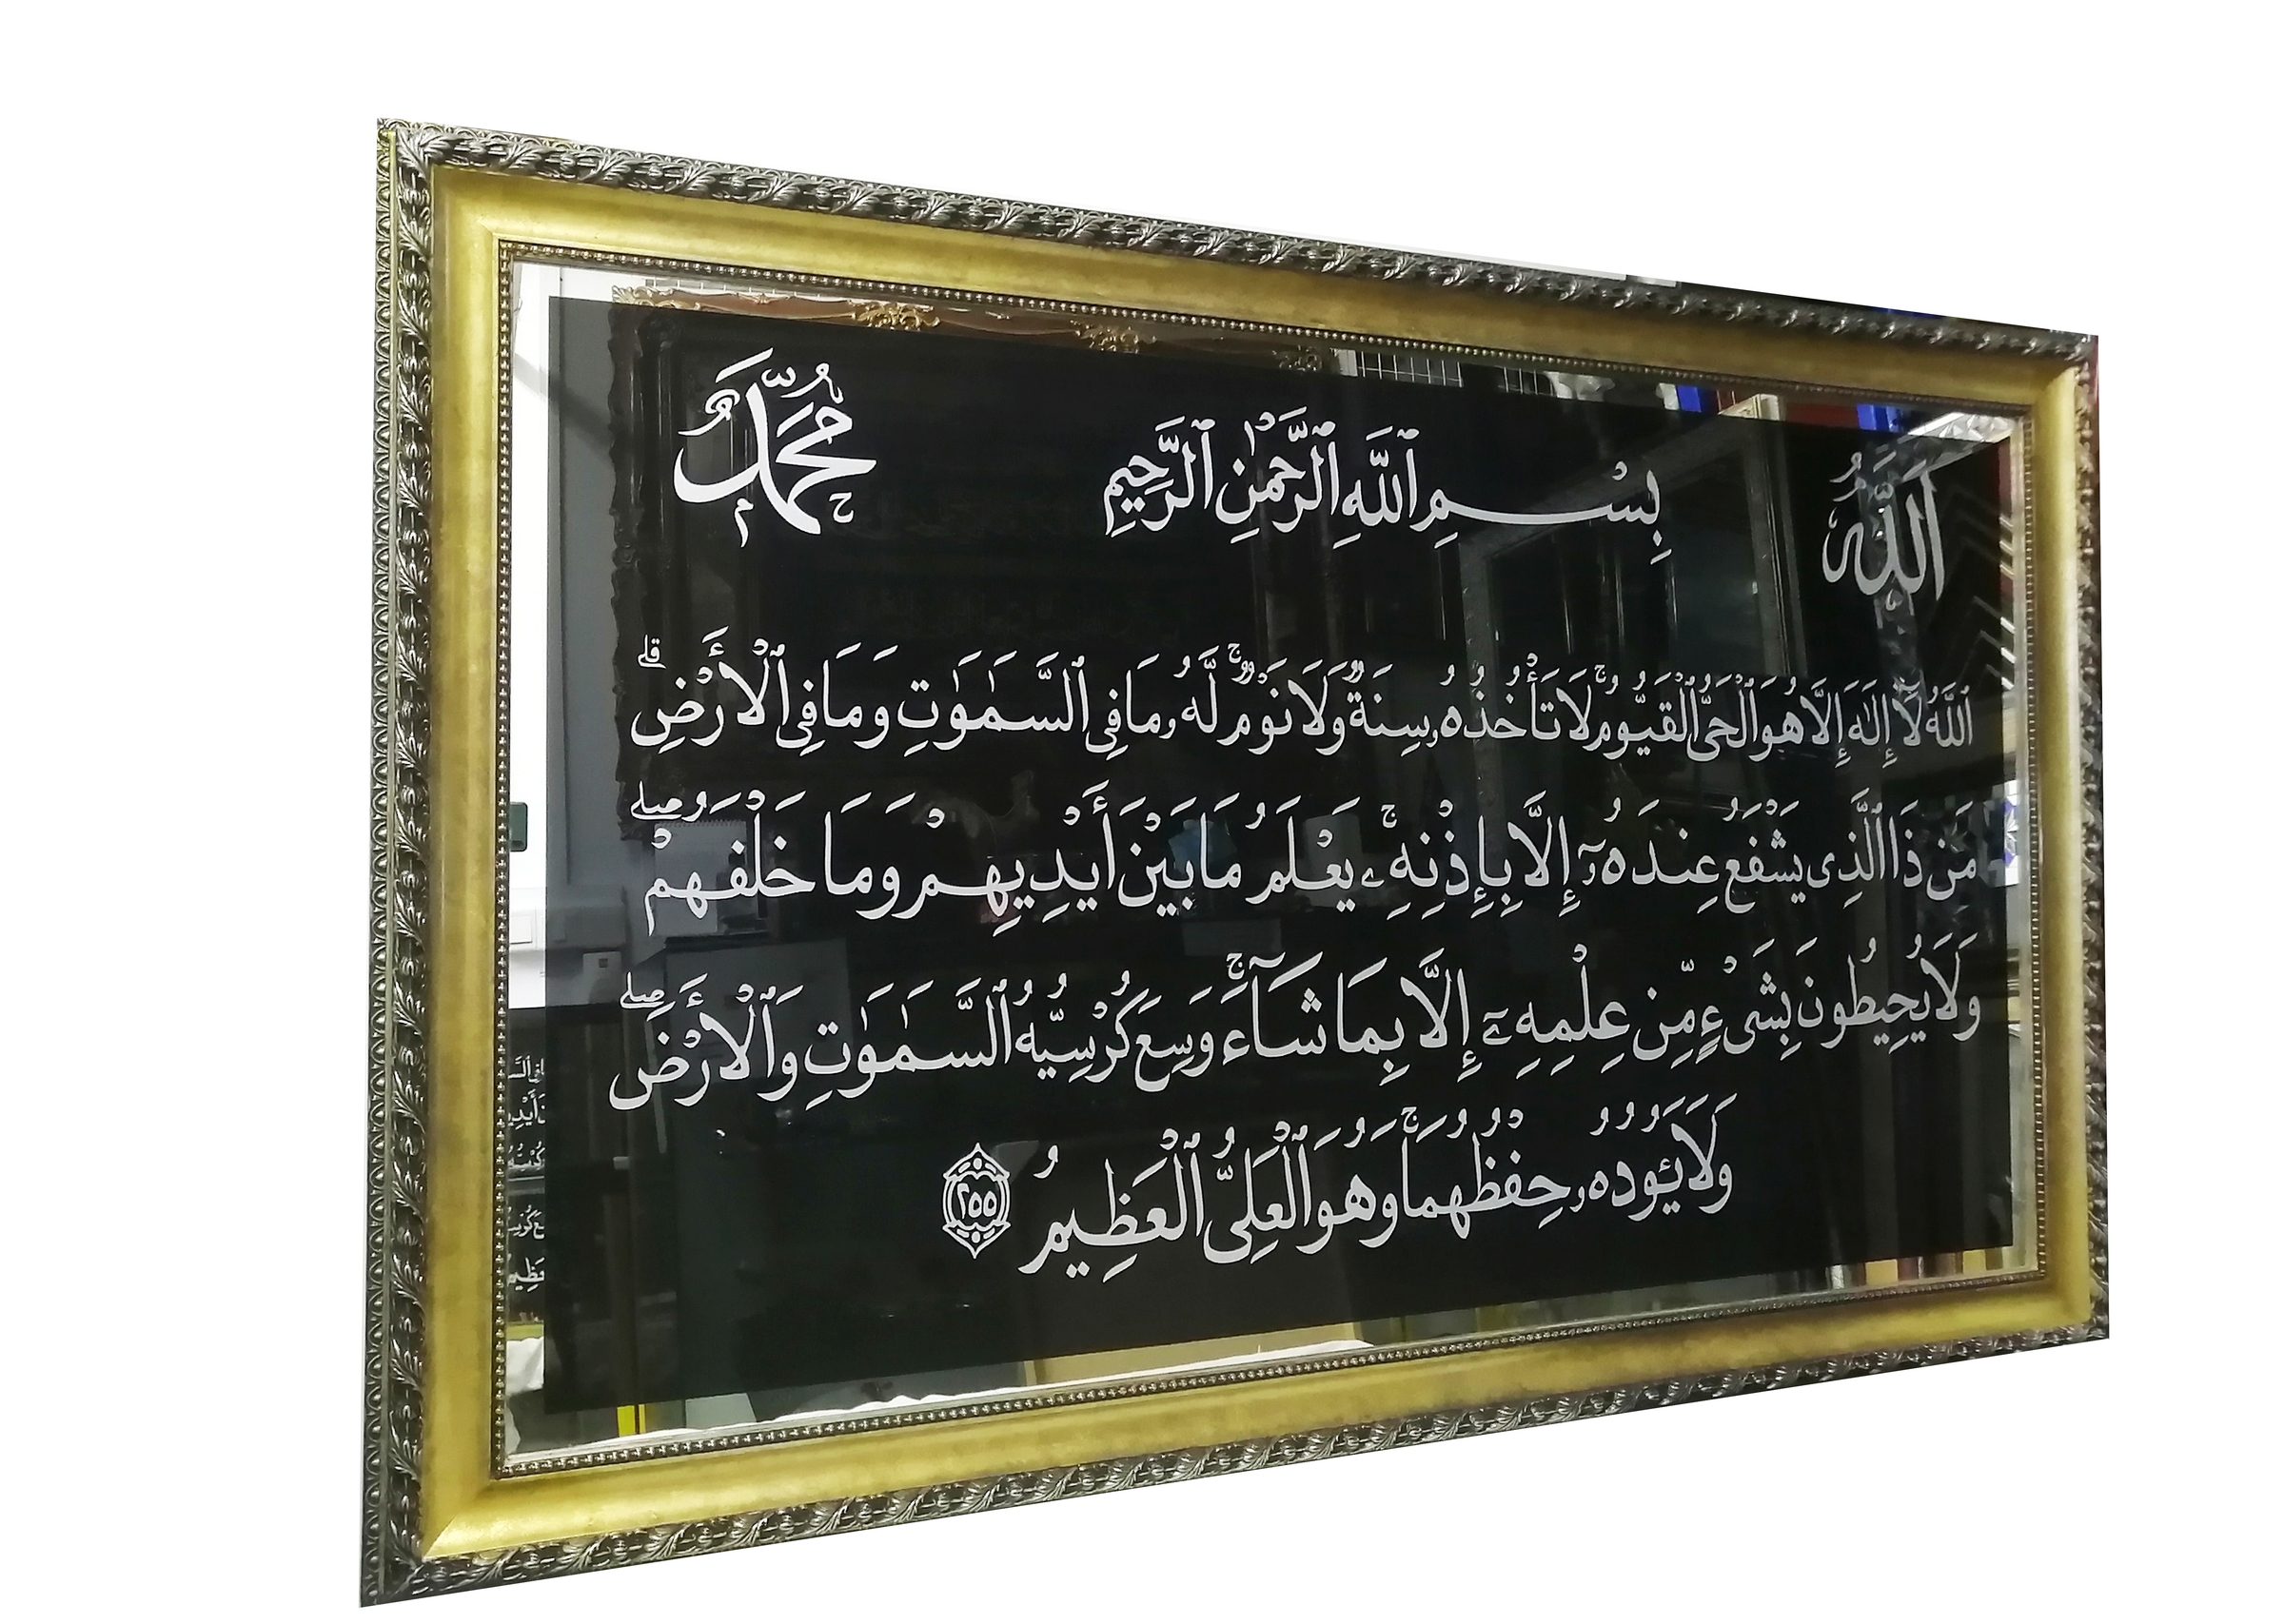 ٱللَّهُ
بِسْمِ ٱللَّهِ ٱلرَّحْمَٰنِ ٱلرَّحِيمِ
مُحَمَّدٌ
ٱللَّهُ لَآ إِلَٰهَ إِلَّا هُوَ ٱلْحَىُّ ٱلْقَيُّومُ ۚ لَا تَأْخُذُهُۥ سِنَةٌ وَلَا نَوْمٌ ۚ لَّهُۥ مَا فِى ٱلسَّمَٰوَٰتِ وَمَا فِى ٱلْأَرْضِ ۗ
مَن ذَا ٱلَّذِى يَشْفَعُ عِندَهُۥٓ إِلَّا بِإِذْنِهِۦ ۚ يَعْلَمُ مَا بَيْنَ أَيْدِيهِمْ وَمَا خَلْفَهُمْ ۖ
وَلَا يُحِيطُونَ بِشَىْءٍ مِّنْ عِلْمِهِۦٓ إِلَّا بِمَا شَآءَ ۚ وَسِعَ كُرْسِيُّهُ ٱلسَّمَٰوَٰتِ وَٱلْأَرْضَ ۖ
وَلَا يَـُٔودُهُۥ حِفْظُهُمَا ۚ وَهُوَ ٱلْعَلِىُّ ٱلْعَظِيمُ ٢٥٥